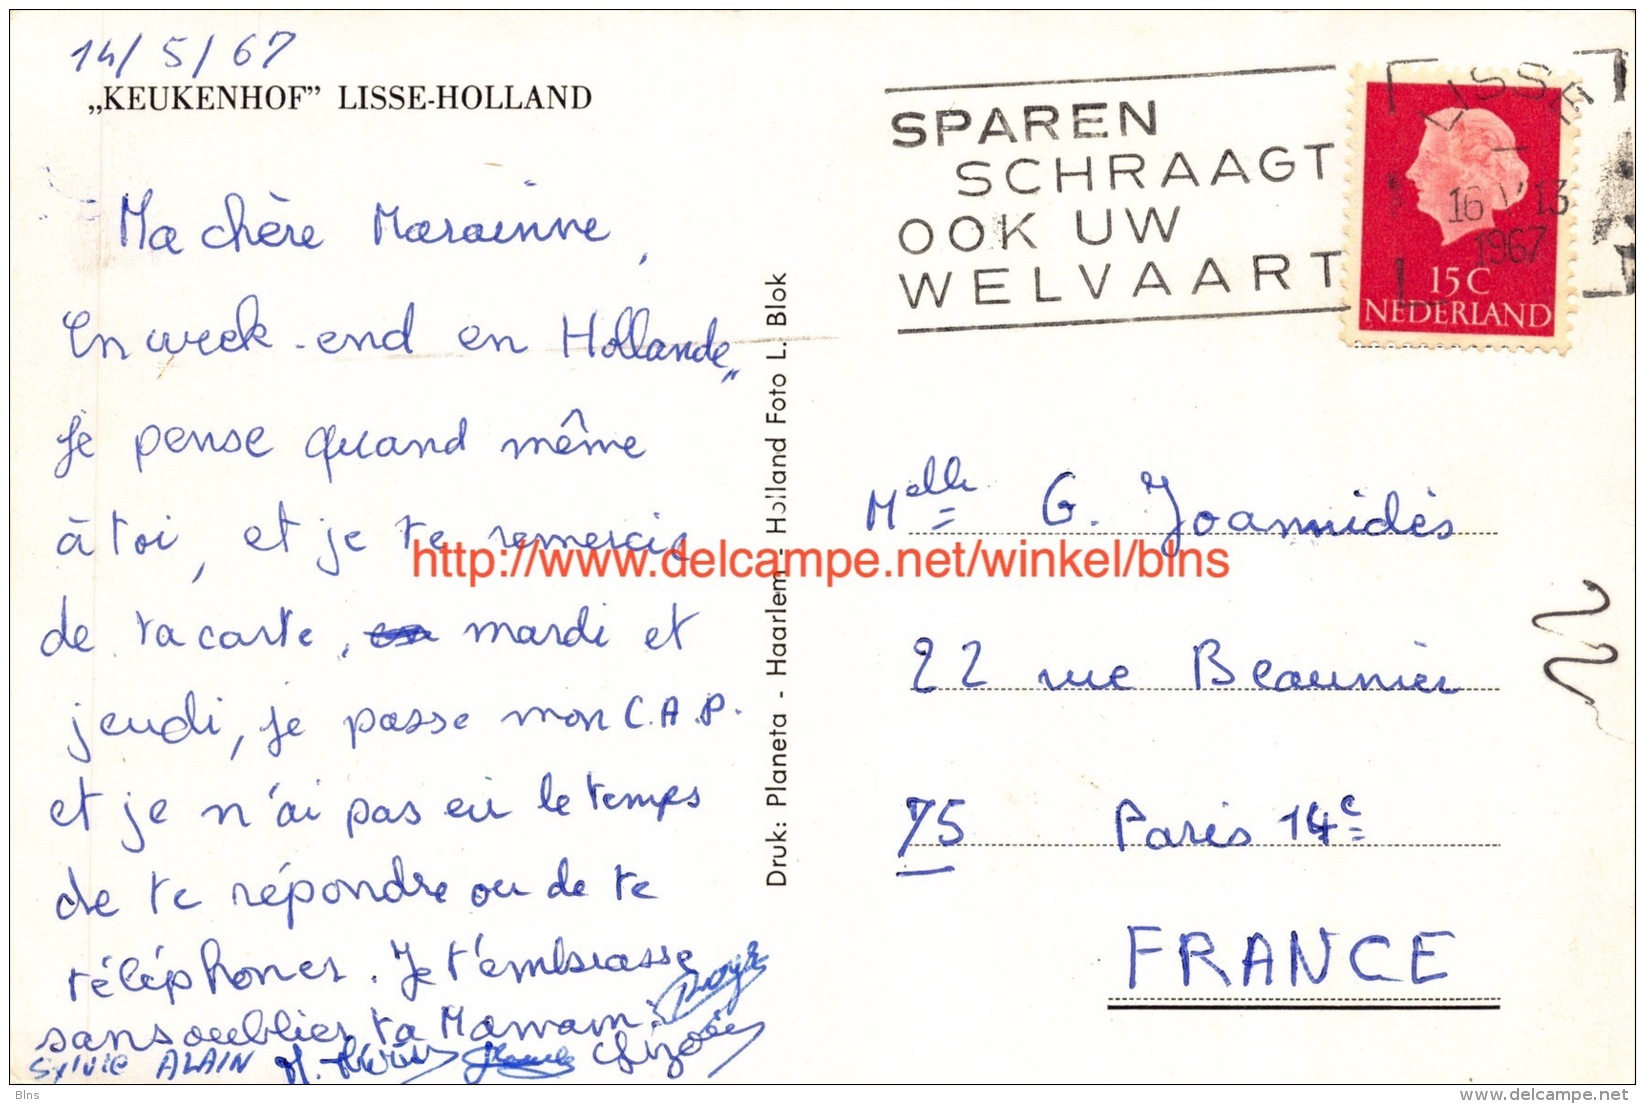 14/5/67
„KEUKENHOF” LISSE-HOLLAND
Ma chère Marainne,
En week-end en Hollande,
je pense quand même
à toi, et je te remercie
de ta carte, mardi et
jeudi, je passe mon C.A.P.
et je n'ai pas eu le temps
de te répondre ou de te
téléphoner. Je t'embrasse
sans oublier ta Maman.
Sylvie ALAIN
Druk: Planeta - Haarlem - Holland Foto L. Blok
SPAREN
SCHRAAGT
OOK UW
WELVAART
LISSE
16 V 13
1967
15 C
NEDERLAND
Melle G. Joannidès
22 rue Beaunier
75 Paris 14e
FRANCE
http://www.delcampe.net/winkel/blns
Blns
www.delcampe.net